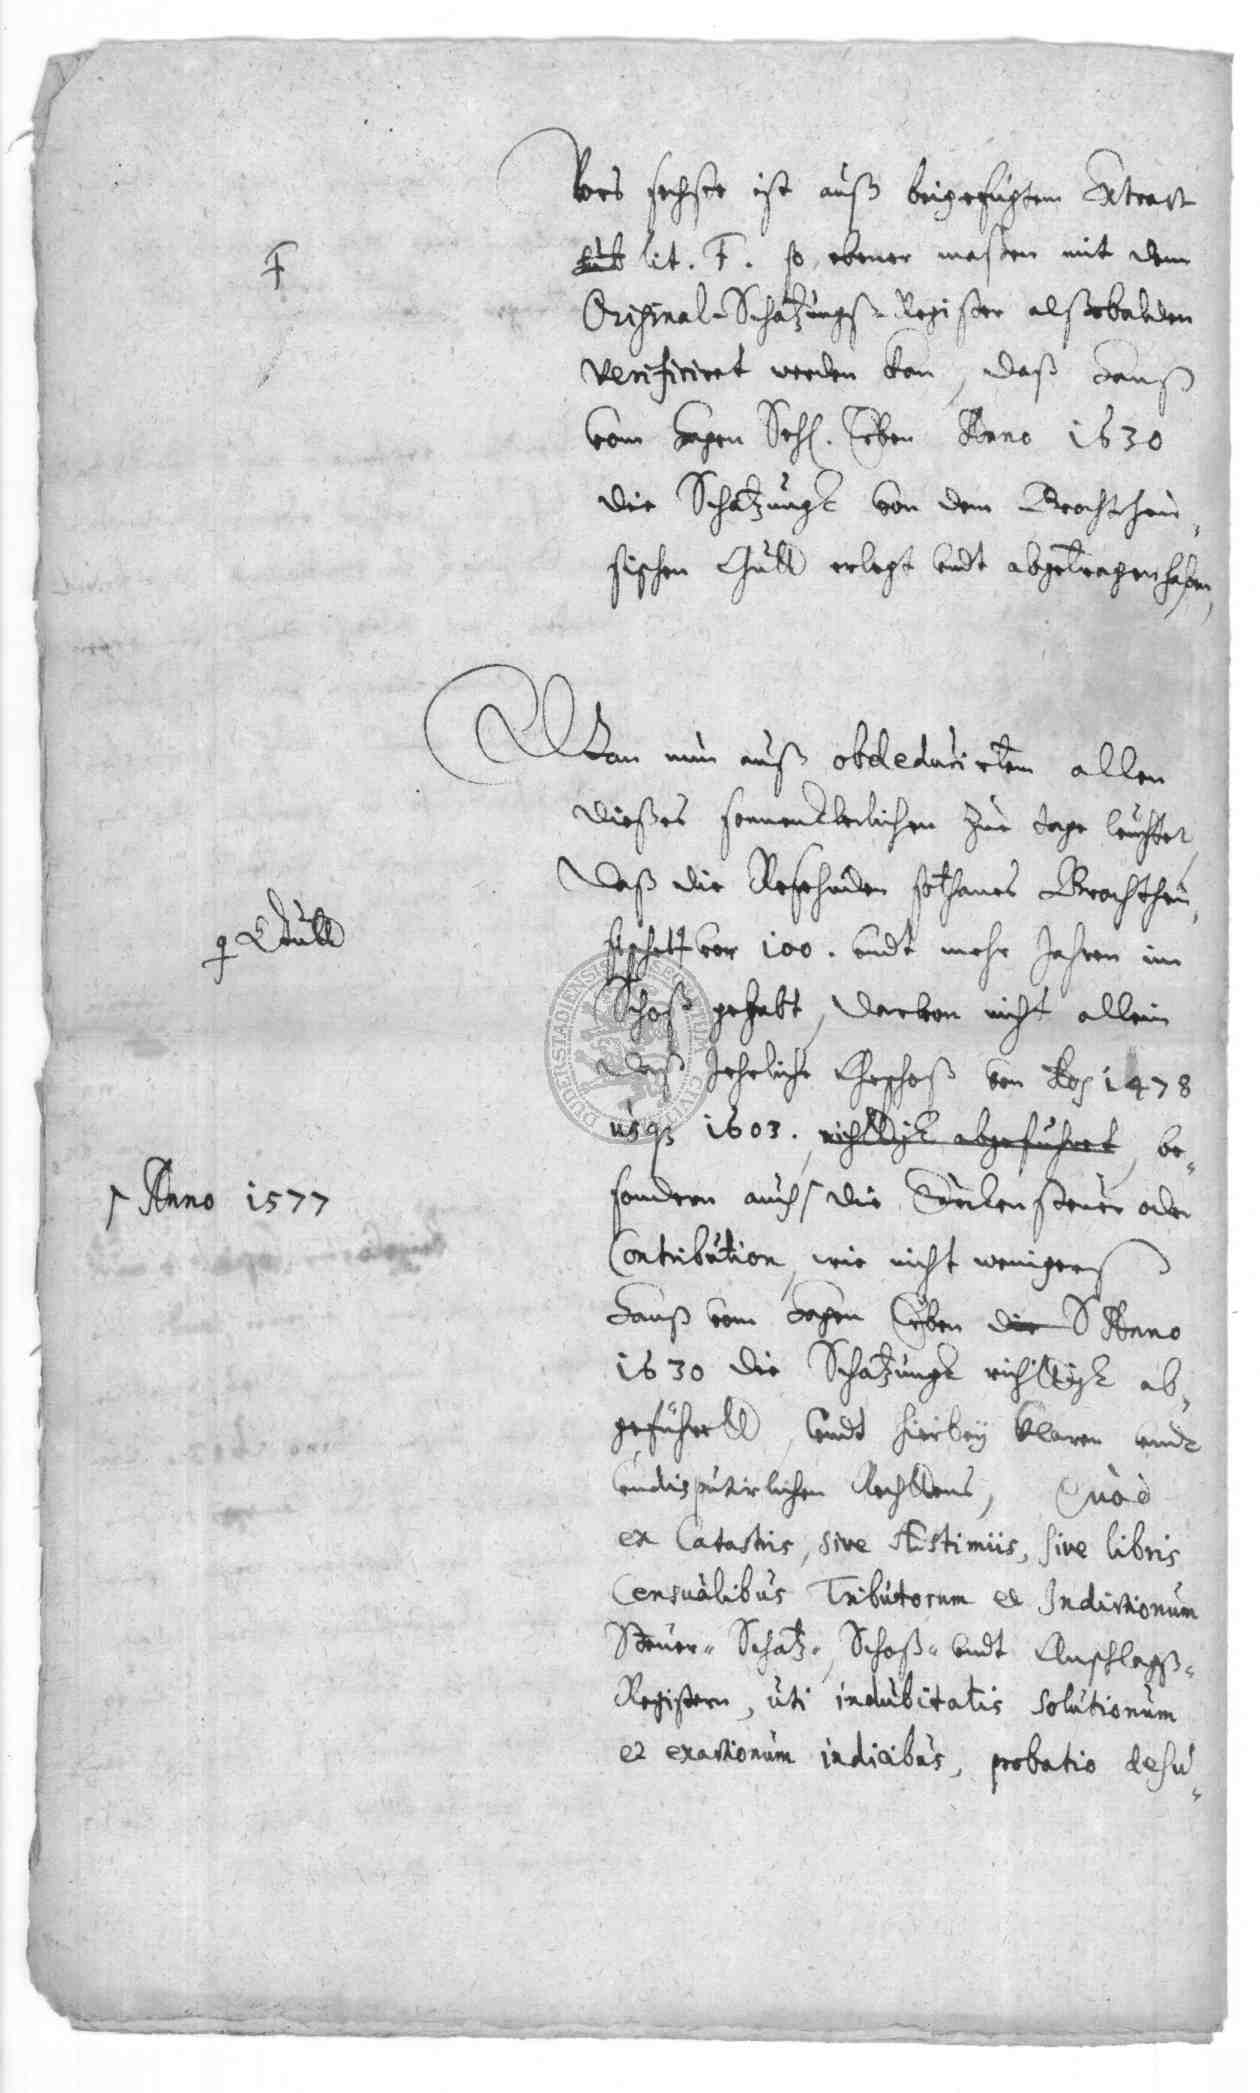 Vors sechste ist auß beigefügtem Extract
sub lit. F. so ebener maßen mit dem
F
Original-Schatzungß-Register alßobalden
verificiret werden kan, daß Hanß
vom Hagen Sehl. Erben Anno 1630
die Schatzungk von dem Brochtheu-
sischen Gutt erlegt undt abgetragen haben,
Wan nun auß obdeducirtem allen
dießes sonnenklerlichen zue tage leuchtet,
daß die Resehaden sothanes Brochtheu-
sische vor 100. undt mehr Jahren im
Gutt
Schoß gehabt, darvon nicht allein
daß Jehrliche Geschoß von Ao 1478
usq3 1603. richttigk abgeführet, be-
sondern auch die Türkensteuer oder
Anno 1577
Contribution, wie nicht wenigerß
Hanß vom Hagen Erben die Anno
1630 die Schatzungk richttigk ab-
geführtt, undt hierbey klaren undt
undisputirlichen Rechttens, Quòd
ex Catastris, sive Æstimiis, sive libris
Censualibus Tributorum et Indictionum
Steuer- Schatz-, Schoß- undt Anschlagß-
Registern, uti indubitatis solutionum
et exactionum indicibus, probatio desu-
DUDERSTADIENSIS